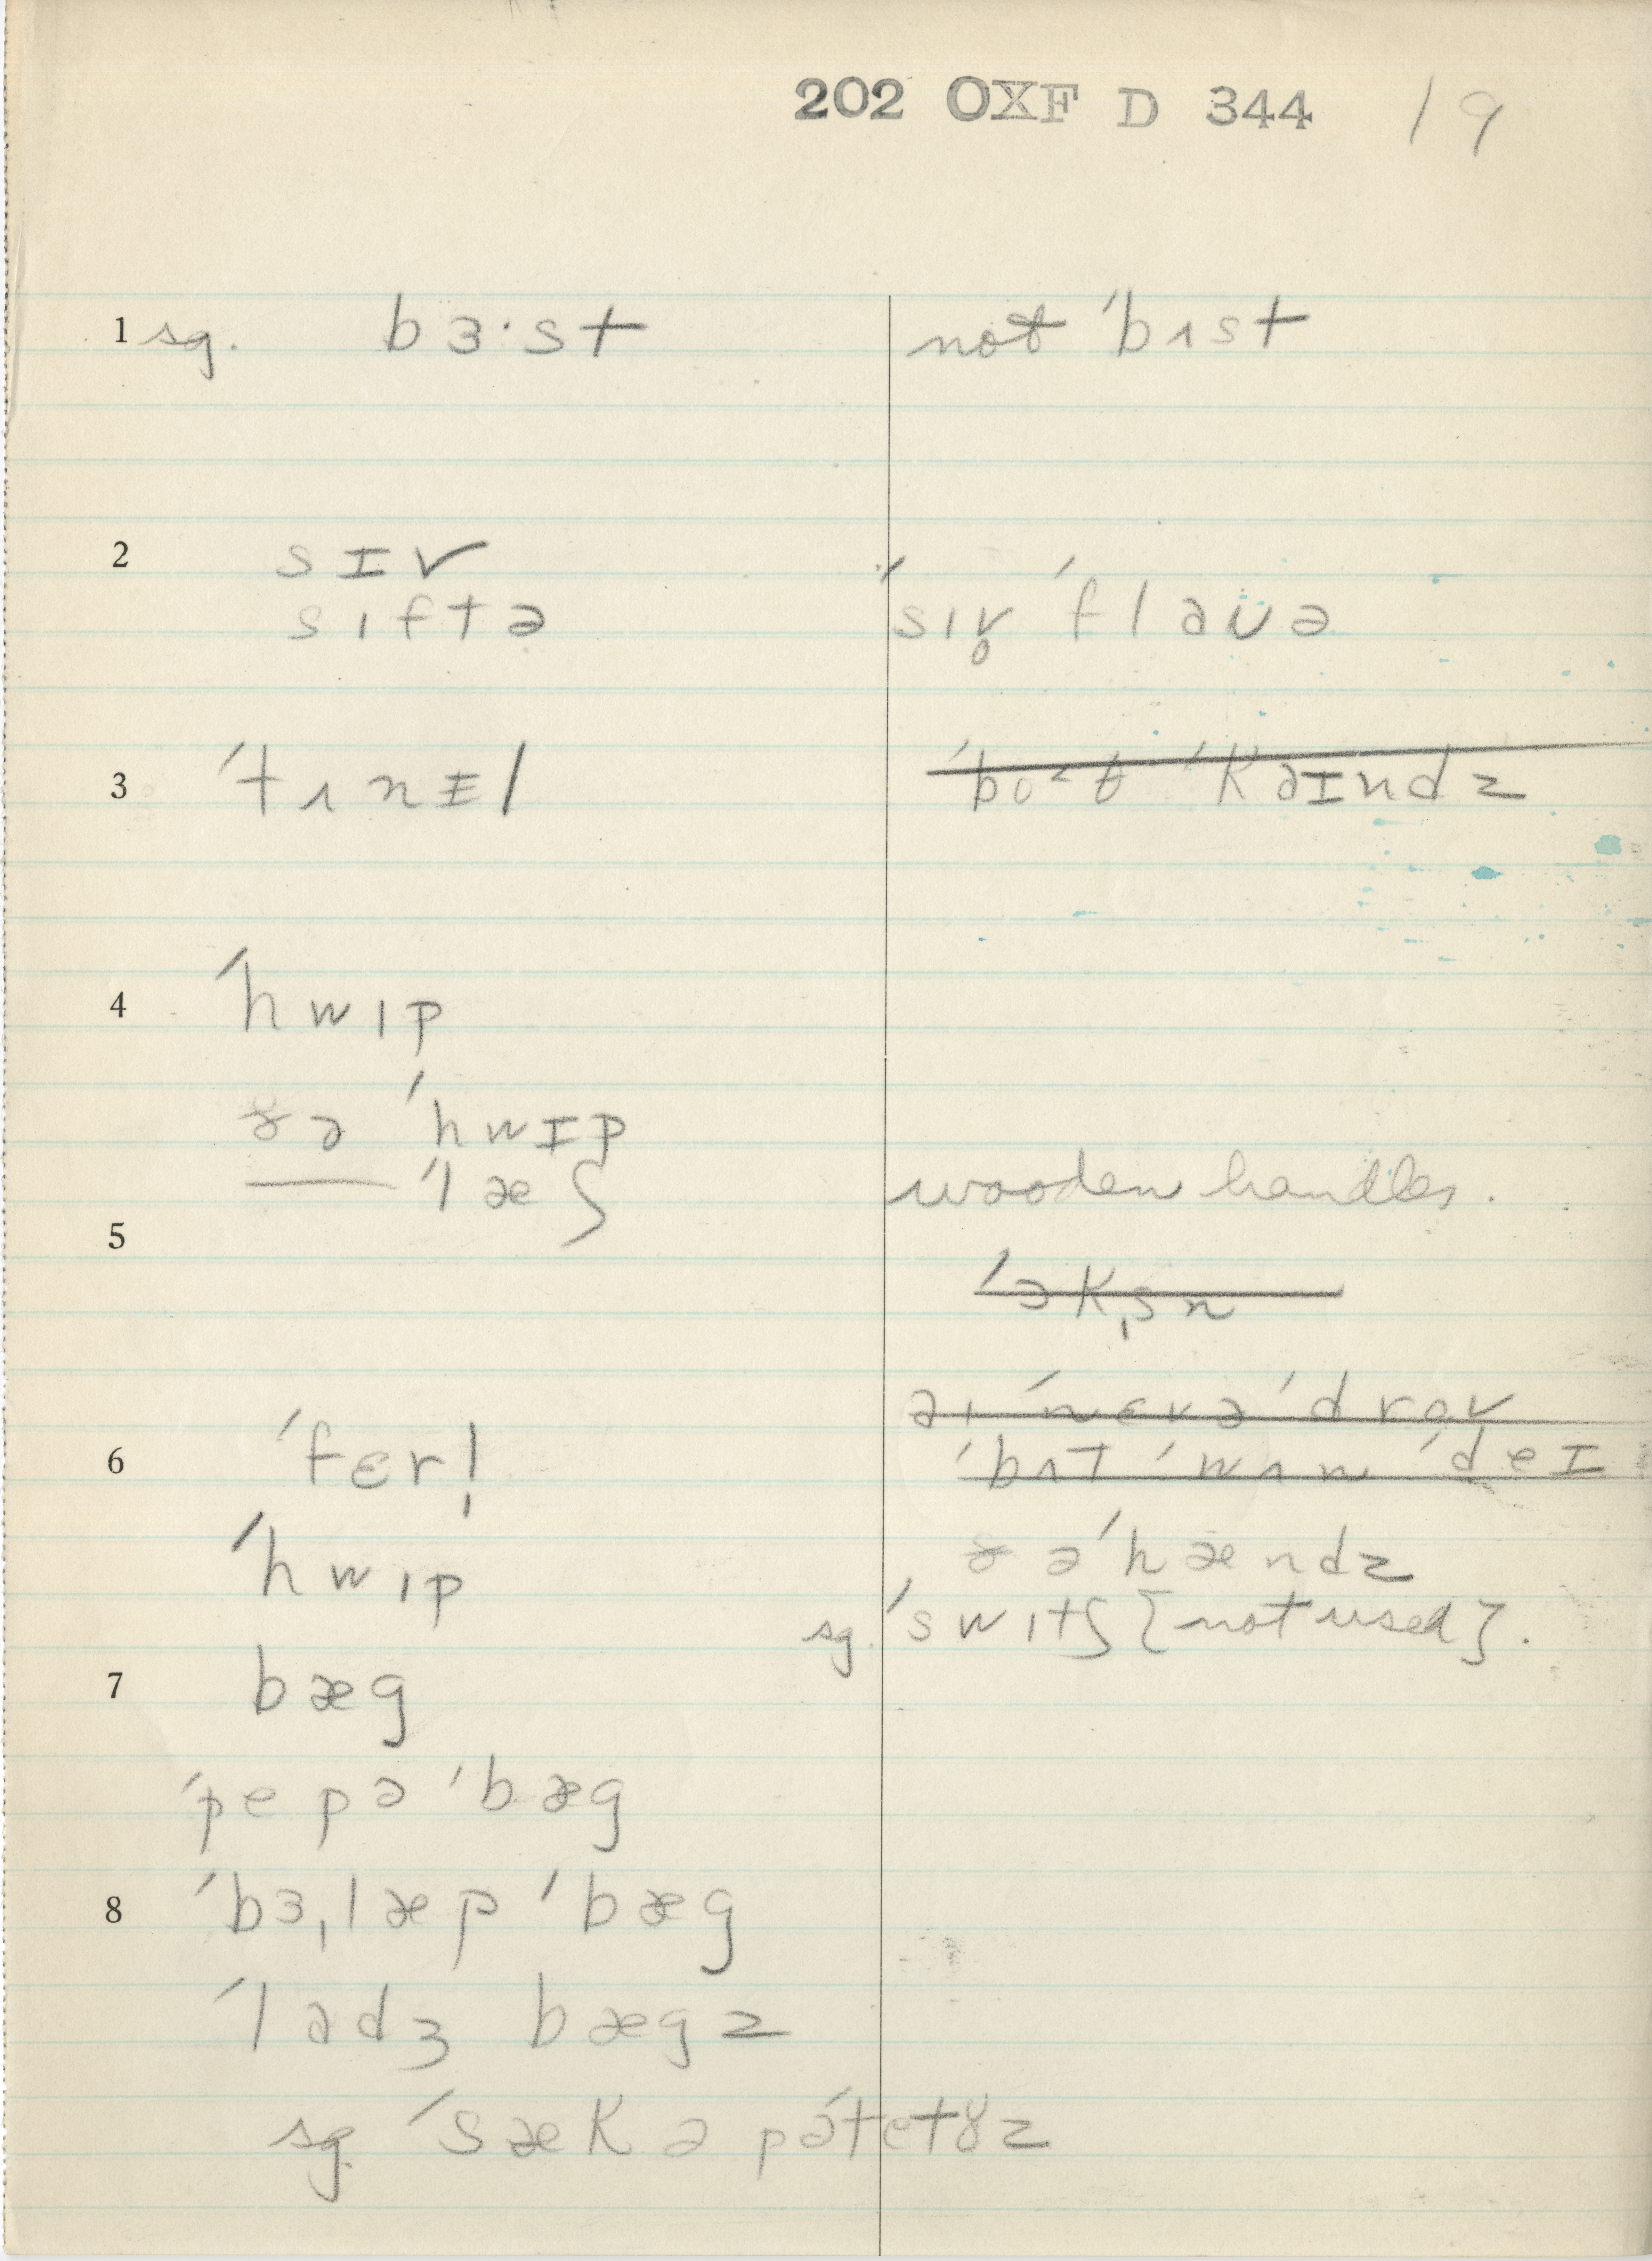 202 OXF D 344 19
1 sg. bɜ·st not ˈbʌst
2 sɪv
sɪftə ˈsɪv̥ ˈflaʊə
3 ˈtʌnɪ̵l ˈkəɪndz
4 ˈhwɪp
ðə ˈhwɪp
— ˈlæʃ wooden handles.
5
ˈɔkˌsn
aɪ ˈnɛvə ˈdrov
ˈbʌt ˈwʌn ˈdeɪ
6 ˈfɛrˌl
ˈhwɪp ðə ˈhændz
sg. ˈswɪtʃ [not used].
7 bæg
ˈpepə ˈbæg
8 ˈbɜˌlæp ˈbæg
ˈladʒ bægz
sg. ˈsæk ə pəˈtetɤz